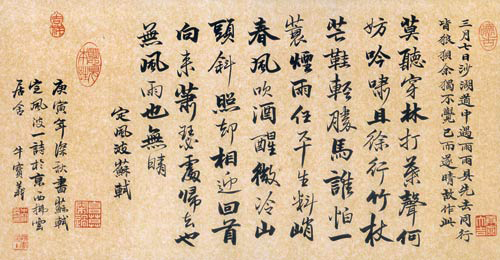 三月七日沙湖道中遇雨雨具先去同行
皆狼狽余獨不覺已而遂晴故作此
莫聽穿林打葉聲何
妨吟嘯且徐行竹杖
芒鞋輕勝馬誰怕一
蓑煙雨任平生料峭
春風吹酒醒微冷山
頭斜照却相迎回首
向来蕭瑟處歸去也
無風雨也無晴
定風波蘇軾
庚寅年深秋書蘇軾
定風波一詩於京西拂雲
居舍 牛寶